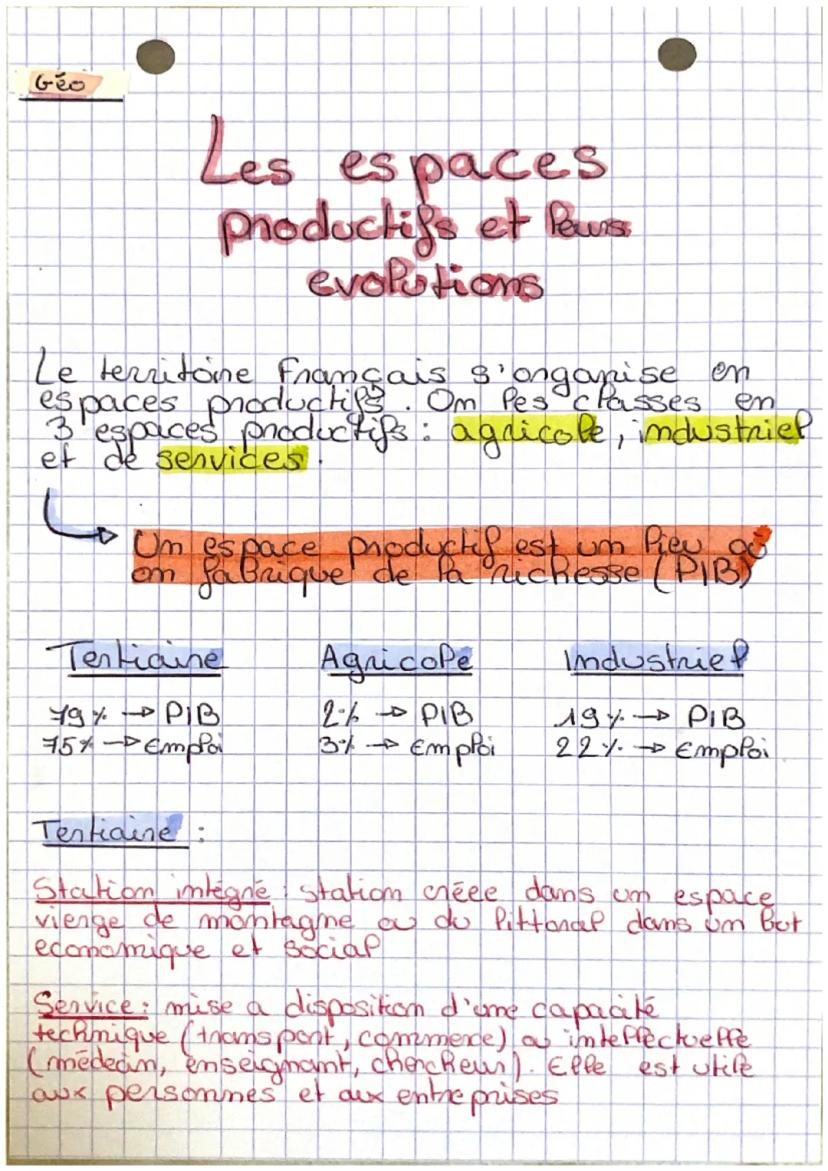 Géo
Les espaces
productifs et leurs
evolutions
Le territoire français s'organise en
espaces productifs. On les classes en
3 espaces productifs : agricole, industriel
et de services.
Un espace productif est un lieu où
on fabrique de la richesse (PIB)
Tertiaire Agricole Industriel
79% → PIB 2% → PIB 19% → PIB
75% → Emploi 3% → Emploi 22% → Emploi
Tertiaire :
Station intégné : station créée dans un espace
vierge de montagne ou du littoral dans un but
economique et social
Service : mise a disposition d'une capacité
technique (transport, commerce) ou intellectuelle
(médecin, enseignant, chercheur). Elle est utile
aux personnes et aux entreprises